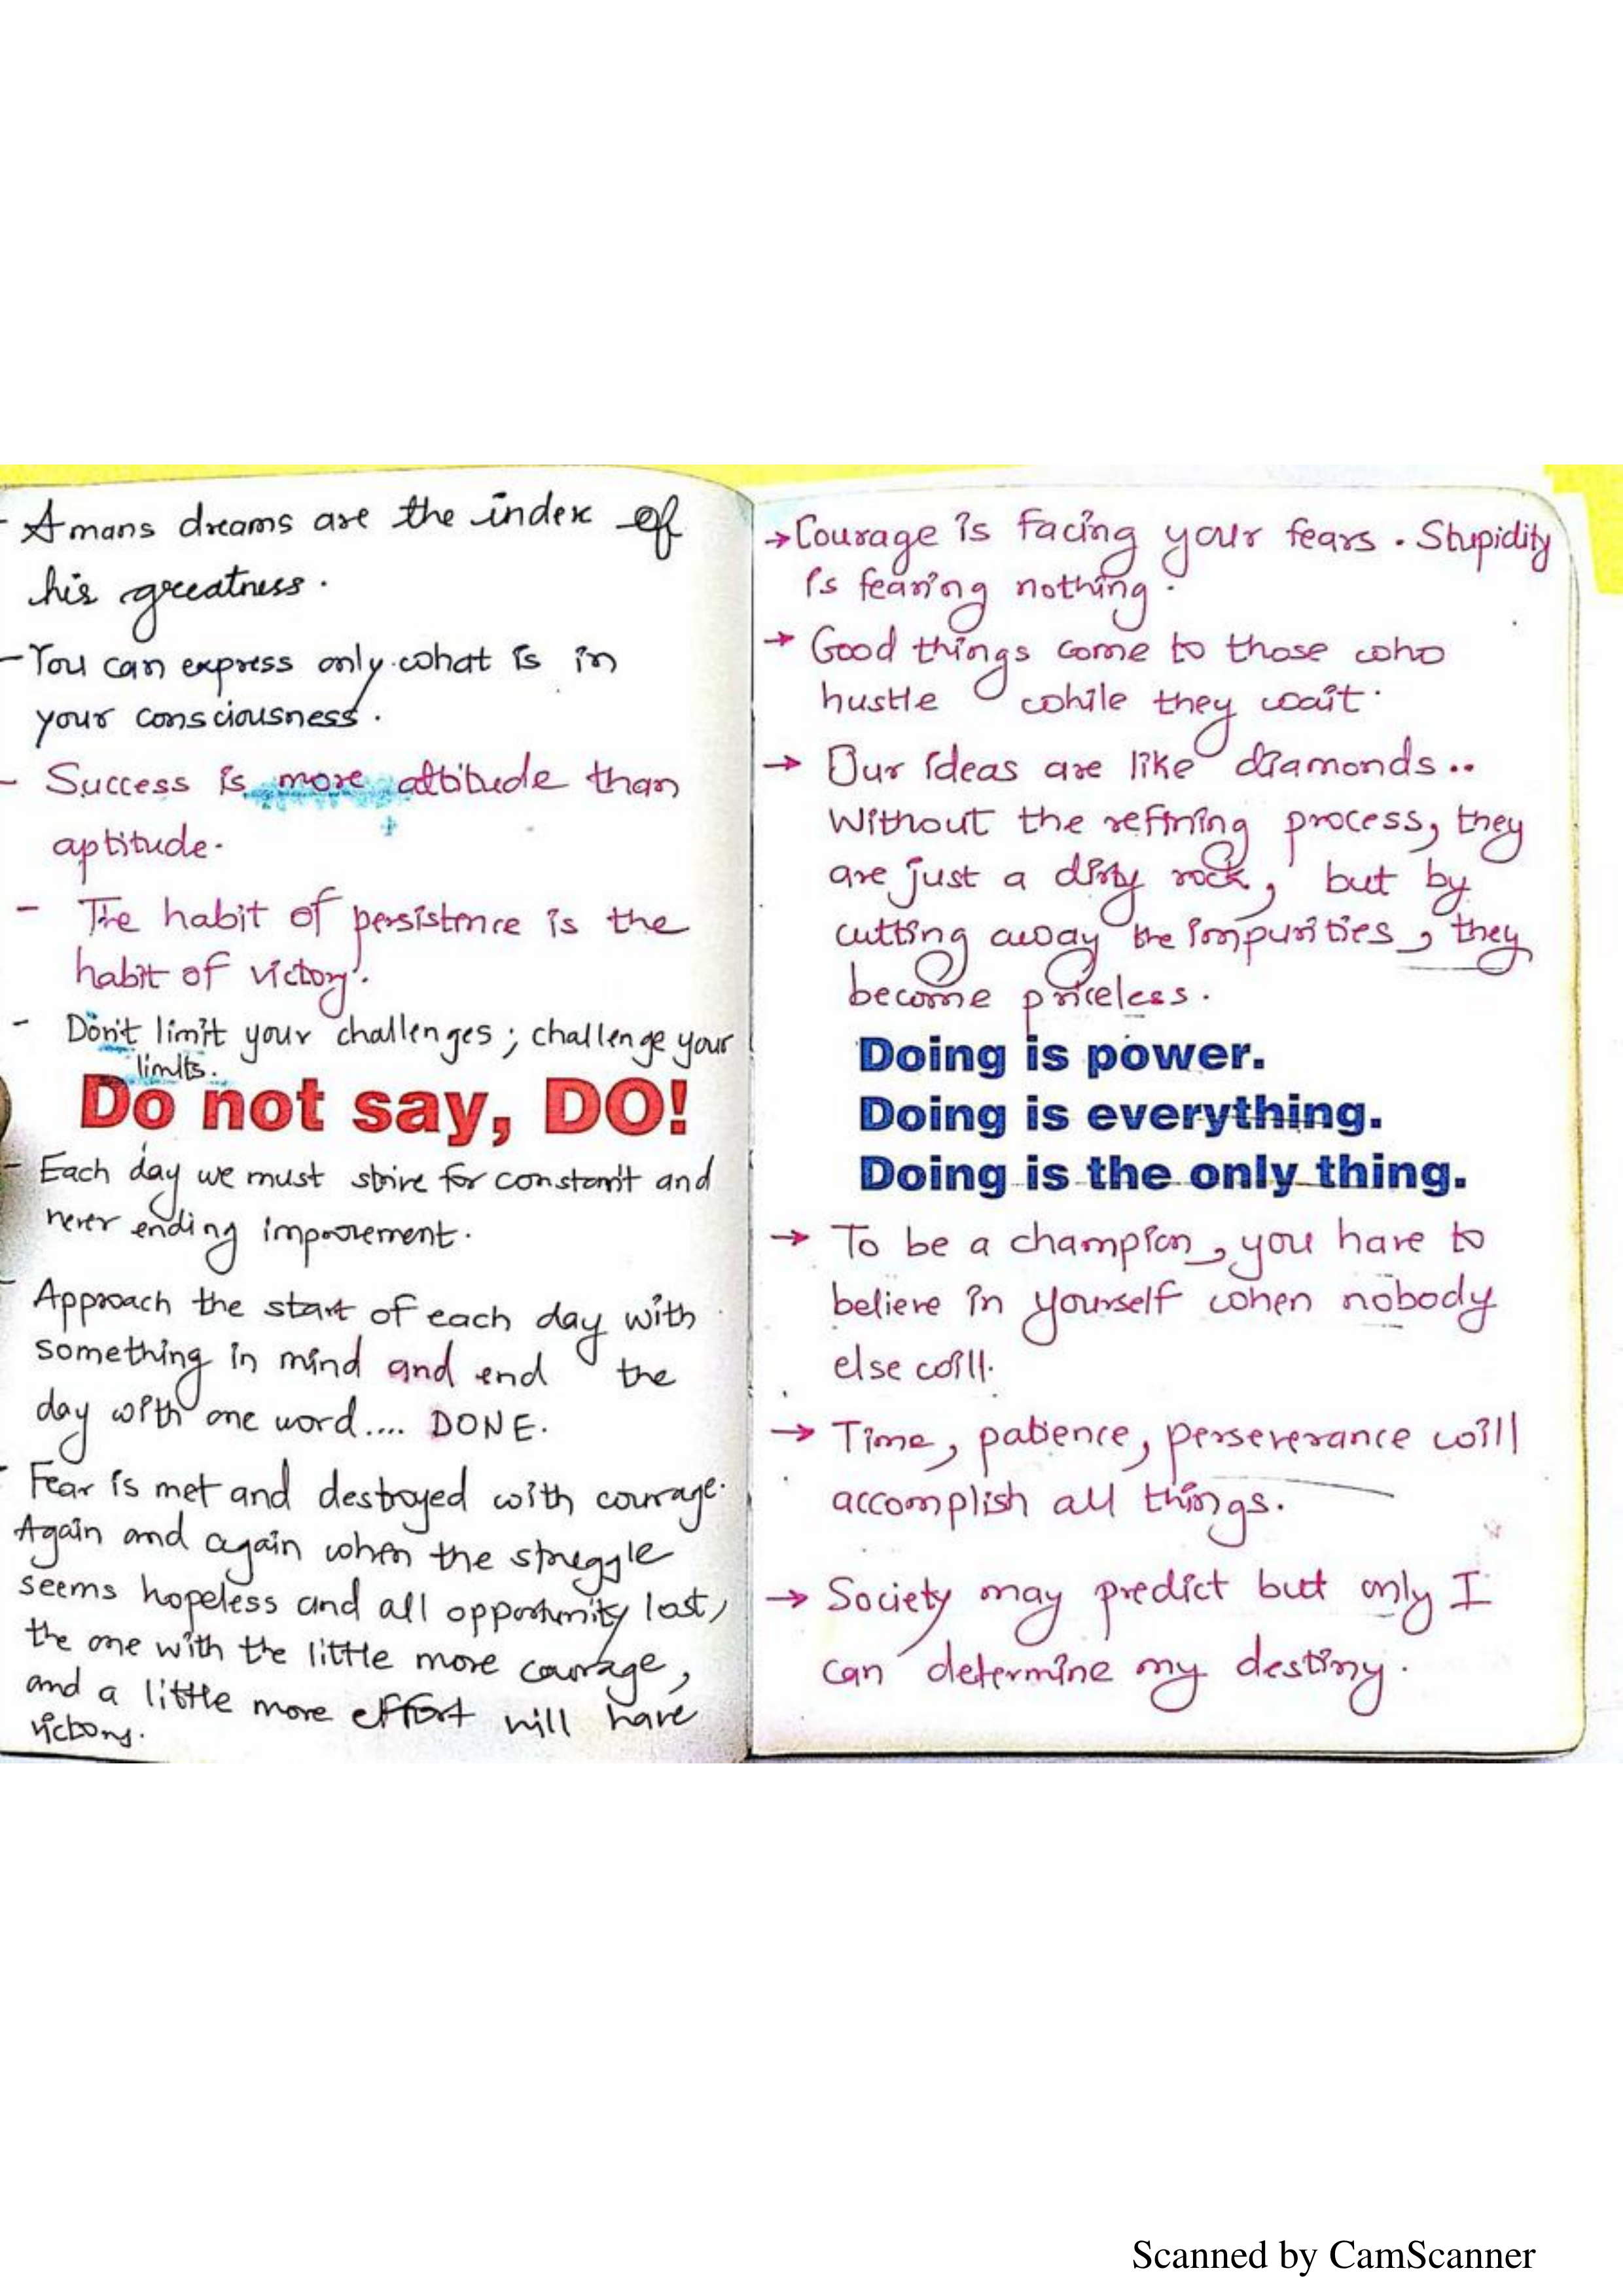 - A mans dreams are the index of
his greatness.
- You can express only what is in
your consciousness.
- Success is more attitude than
aptitude.
- The habit of persistence is the
habit of victory.
- Don't limit your challenges; challenge your
limits.
Do not say, DO!
- Each day we must strive for constant and
never ending improvement.
- Approach the start of each day with
something in mind and end the
day with one word.... DONE.
- Fear is met and destroyed with courage.
Again and again when the struggle
seems hopeless and all opportunity lost,
the one with the little more courage,
and a little more effort will have
victory.
→ Courage is facing your fears. Stupidity
is fearing nothing.
→ Good things come to those who
hustle while they wait.
→ Our ideas are like diamonds..
Without the refining process, they
are just a dirty rock, but by
cutting away the impurities, they
become priceless.
Doing is power.
Doing is everything.
Doing is the only thing.
→ To be a champion, you have to
believe in yourself when nobody
else will.
→ Time, patience, perseverance will
accomplish all things.
→ Society may predict but only I
can determine my destiny.
Scanned by CamScanner